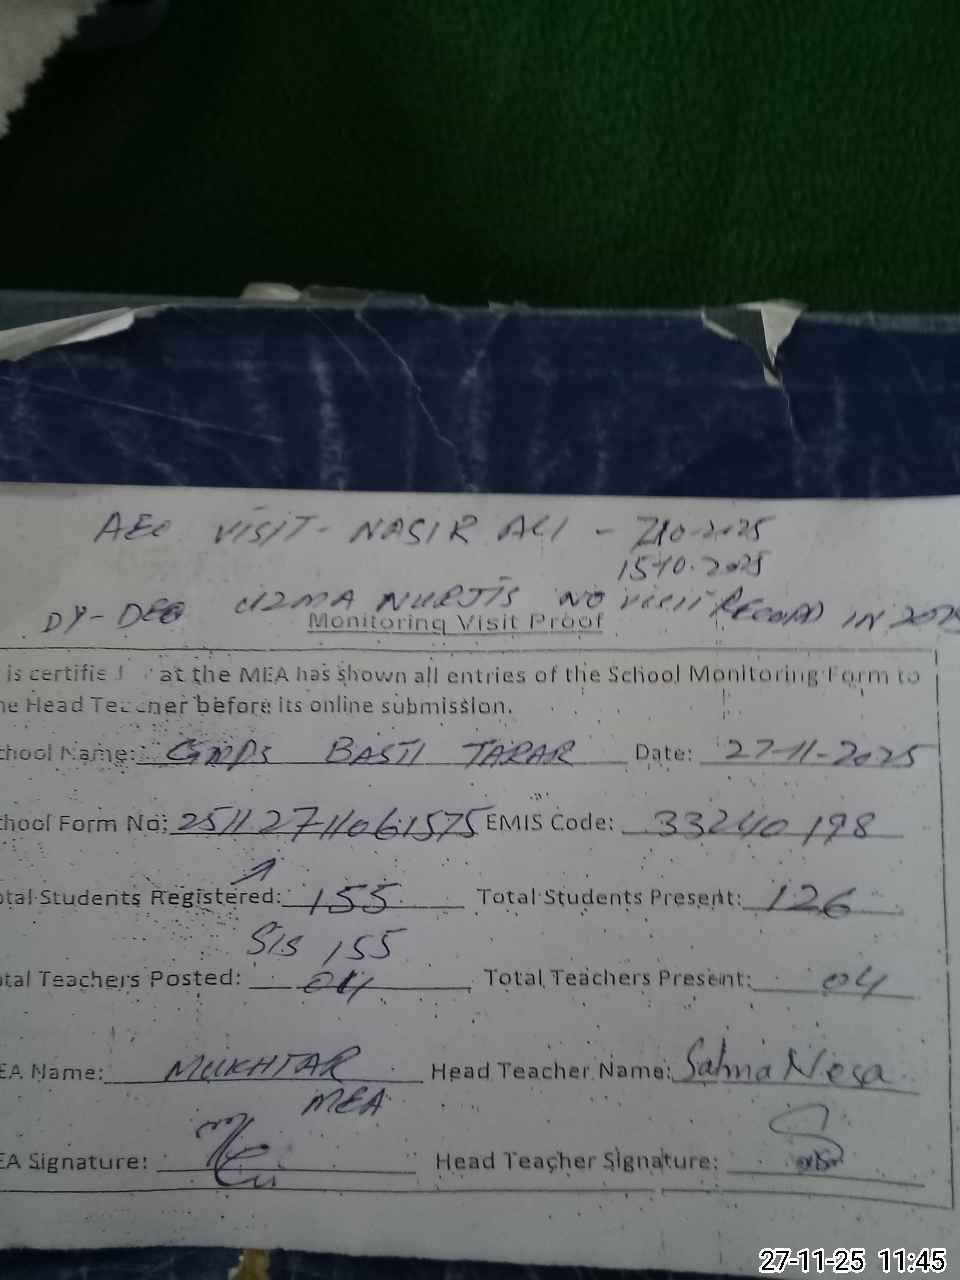 AEO VISIT - NASIR ALI - 7-10-2025
15-10-2025
DY-DEO UZMA NURJIS NO VISIT RECORD IN 2025
Monitoring Visit Proof
is certified that the MEA has shown all entries of the School Monitoring Form to
he Head Teacher before its online submission.
chool Name: GMPS BASTI TARAR Date: 27-11-2025
chool Form No: 25112711061575 EMIS Code: 33240198
otal Students Registered: 155 Total Students Present: 126
SIS 155
otal Teachers Posted: 04 Total Teachers Present: 04
EA Name: MUKHTAR Head Teacher Name: Salma Nesa
MEA
EA Signature: Head Teacher Signature:
27-11-25 11:45